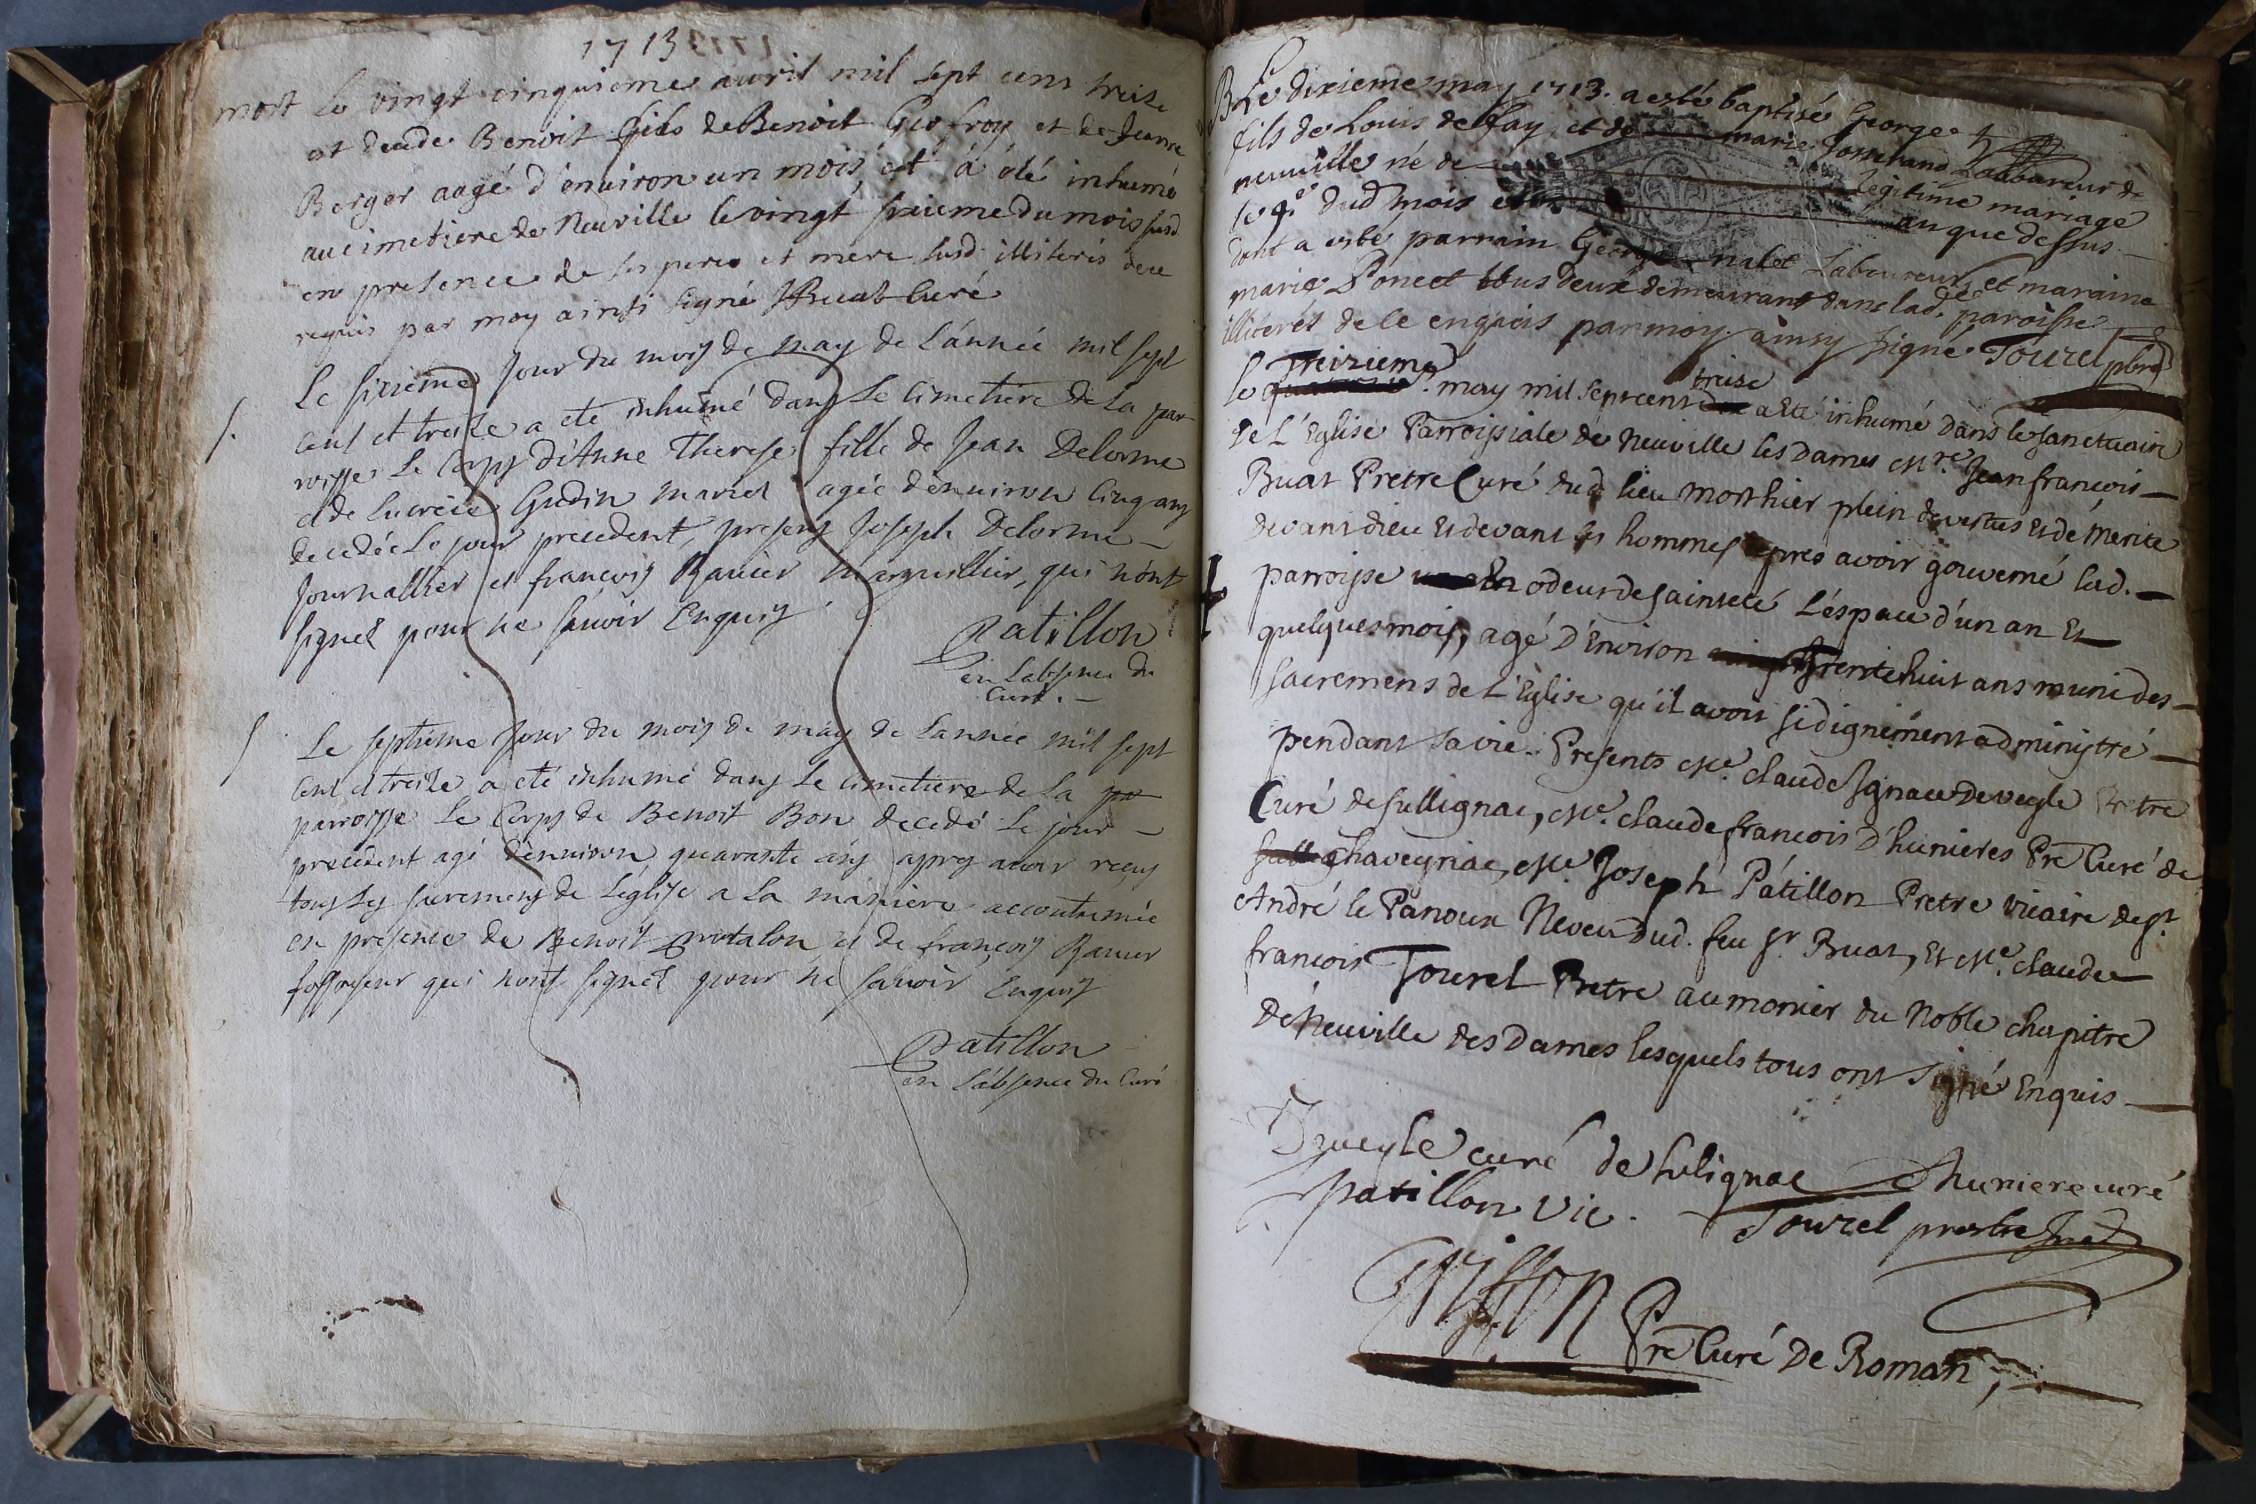 1713
mort le vingt cinquieme avril mil sept cens treize
est decede Benoit fils de Benoit Geofroy et de Jeanne
Berger aagé d'environ un mois et á été inhumé
au cimetiere de Neuville le vingt sixieme du mois susd
en presence de ses pere et mere susd illiterés de ce
requis par moy ainsi signé Buat curé
Le sixieme jour du mois de may de L'année mil sept
cent et treize a eté inhumé dans Le Cimetiere de La par
roisse Le Corps d'Anne Therese fille de Jean Delorme
et de Lucrece Gudin mariés agée d'environ cinq ans
decedée Le jour precedent, presens Joseph Delorme
Journallier et françois Ravier Marguillier, qui n'ont
signés pour ne sçavoir Enquis
Patillon
en Labsence du
Curé.
Le septieme jour du mois de may de Lannée mil sept
cent et treize a eté inhumé dans Le cimetiere de La pa
parroisse Le Corps de Benoit Bon decedé Le jour
precedent agé d'environ quarante ans apres avoir reçus
tous Les sacremens de L'église a La maniere accoutumée
en presence de Benoit et de françois Ravier
fossoyeur qui n'ont signés pour ne sçavoir Enquis
Patillon
en Labsence du Curé
B Le dixieme may 1713. a esté baptisé George
fils de Louis de fay et de marie Josserand Laboureur de
neuuille né de legitime mariage
le 4e dud mois an que dessus
dont a esté parrain George nalet Laboureur et maraine
marie Poncet tous deux demeurant dans lad.e paroisse
illiterés de ce enquis par moy ainsy signé Tourel pbre
le Treizieme may mil sept cent treize a Eté inhumé dans le sanctuaire
de L'Eglise Parroissiale de Neuville les Dames Mre. Jean francois
Buat Pretre Curé dud lieu mort hier plein de vertus et de Merite
devant dieu Et devant les hommes apres avoir gouverné lad.
parroisse En odeur de sainteté L'éspace d'un an Et
quelques mois, agé D'Environ trente huit ans muni des
sacremens de L'Eglise qu'il avoit si dignement administré
pendant sa vie. Presents Mre. Claude Ignace Deveyle Pretre
Curé de sullignac, Mre. claude francois D'hunieres Pre Curé de
chaveyriac, Mre Joseph Pátillon Pretre vicaire de st.
André le Panoux Neveu dud. feu sr. Buat, Et Mre. claude
francois Tourel Pretre aumonier du Noble chapitre
de Neuville des Dames lesquels tous ont signé Enquis
Deveyle curé de sulignac Dhuniere curé
patillon vic. Tourel prestre
Griffon Pre Curé De Roman,